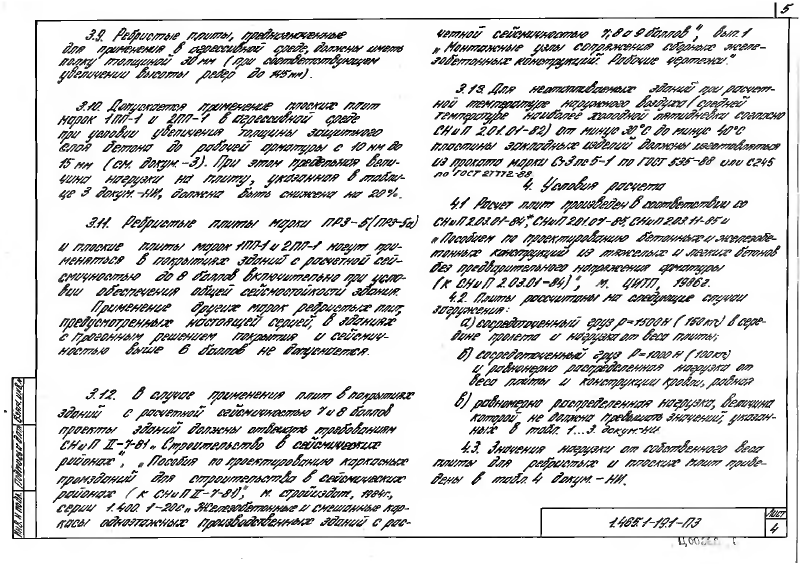 5
3.9. Ребристые плиты, предназначенные
для применения в агрессивной среде, должны иметь
полку толщиной 30 мм (при соответствующем
увеличении высоты ребер до 145 мм).
3.10. Допускается применение плоских плит
марок 1ПП-1 и 2ПП-1 в агрессивной среде
при условии увеличения толщины защитного
слоя бетона до рабочей арматуры с 10 мм до
15 мм (см. докум. -3). При этом предельная вели-
чина нагрузки на плиту, указанная в табли-
це 3 докум. -НИ, должна быть снижена на 20%.
3.11. Ребристые плиты марки ПРЭ-5(ПРЭ-5а)
и плоские плиты марок 1ПП-1 и 2ПП-1 могут при-
меняться в покрытиях зданий с расчетной сей-
смичностью до 8 баллов включительно при усло-
вии обеспечения общей сейсмостойкости здания.
Применение других марок ребристых плит,
предусмотренных настоящей серией, в зданиях
с прогонным решением покрытия и сейсмич-
ностью выше 6 баллов не допускается.
3.12. В случае применения плит в покрытиях
зданий с расчетной сейсмичностью 7 и 8 баллов
проекты зданий должны отвечать требованиям
СНиП II-7-81 „Строительство в сейсмических
районах", „Пособия по проектированию каркасных
промзданий для строительства в сейсмических
районах (к СНиП II-7-81)", м. стройиздат, 1984г.,
серии 1.400.1-20с „Железобетонные и смешанные кар-
касы одноэтажных производственных зданий с рас-
четной сейсмичностью 7, 8 и 9 баллов", Вып. 1
„Монтажные узлы сопряжения сборных желе-
зобетонных конструкций. Рабочие чертежи."
3.13. Для неотапливаемых зданий при расчет-
ной температуре наружного воздуха (средней
температуре наиболее холодной пятидневки согласно
СНиП 2.01.01-82) от минус 30°С до минус 40°С
пластины закладных изделий должны изготовляться
из проката марки Ст3пс5-1 по ГОСТ 535-88 или С245
по ГОСТ 27772-88.
4. Условия расчета
4.1 Расчет плит произведен в соответствии со
СНиП 2.03.01-84*, СНиП 2.01.07-85, СНиП 2.03.11-85 и
„Пособием по проектированию бетонных и железобе-
тонных конструкций из тяжелых и легких бетонов
без предварительного напряжения арматуры
(к СНиП 2.03.01-84)", м. ЦИТП, 1986г.
4.2. Плиты рассчитаны на следующие случаи
загружения:
а) сосредоточенный груз Р=1500Н (150кгс) в сере-
дине пролета и нагрузка от веса плиты;
б) сосредоточенный груз Р=1000Н (100кгс)
и равномерно распределенная нагрузка от
веса плиты и конструкции кровли, равная
в) равномерно распределенная нагрузка, величина
которой не должна превышать значений, указан-
ных в табл. 1...3 докум.-НИ.
4.3. Значения нагрузки от собственного веса
плиты для ребристых и плоских плит приве-
дены в табл. 4 докум. -НИ.
Инв. № подл. Подпись и дата Взам. инв. №
1.465.1-19.1-ПЗ
Лист
4